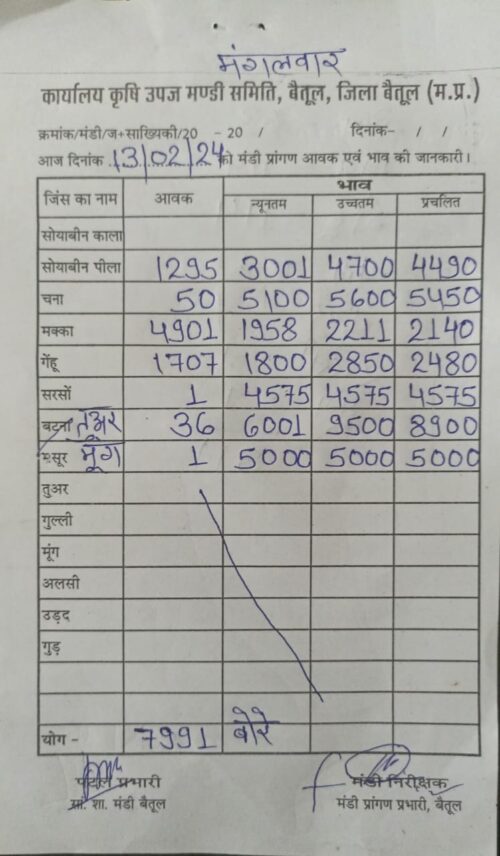 मंगलवार
कार्यालय कृषि उपज मण्डी समिति, बैतूल, जिला बैतूल (म.प्र.)
क्रमांक/मंडी/ज+साख्यिकी/20 - 20 / दिनांक- / /
आज दिनांक 13/02/24 को मंडी प्रांगण आवक एवं भाव की जानकारी।
जिंस का नाम आवक भाव
न्यूनतम उच्चतम प्रचलित
सोयाबीन काला
सोयाबीन पीला 1295 3001 4700 4490
चना 50 5100 5600 5450
मक्का 4901 1958 2211 2140
गेंहू 1707 1800 2850 2480
सरसों 1 4575 4575 4575
बटना तूअर 36 6001 9500 8900
मसूर मूंग 1 5000 5000 5000
तुअर
गुल्ली
मूंग
अलसी
उड़द
गुड़
योग - 7991 बोरे
प्रभारी मंडी निरीक्षक
शा. मंडी बैतूल मंडी प्रांगण प्रभारी, बैतूल